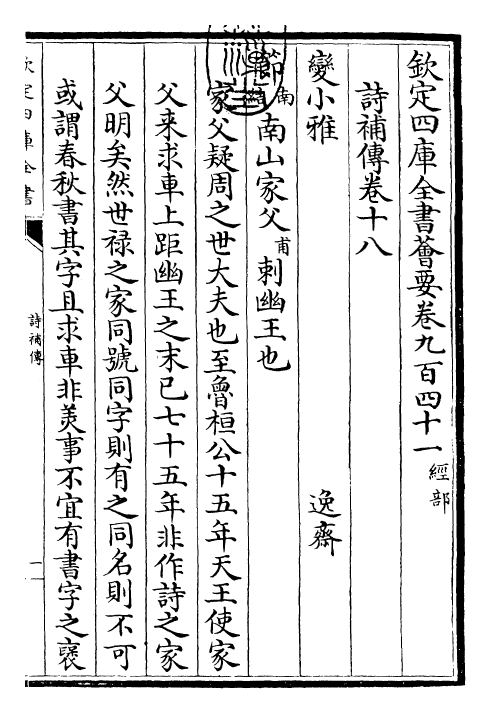 欽定四庫全書薈要卷九百四十一 經部
詩補傳卷十八
逸齋
變小雅
節南山家父甫刺幽王也
家父疑周之世大夫也至魯桓公十五年天王使家
父来求車上距幽王之末已七十五年非作詩之家
父明矣然世禄之家同號同字則有之同名則不可
或謂春秋書其字且求車非美事不宜有書字之襃
欽定四庫全書
詩補傳
一